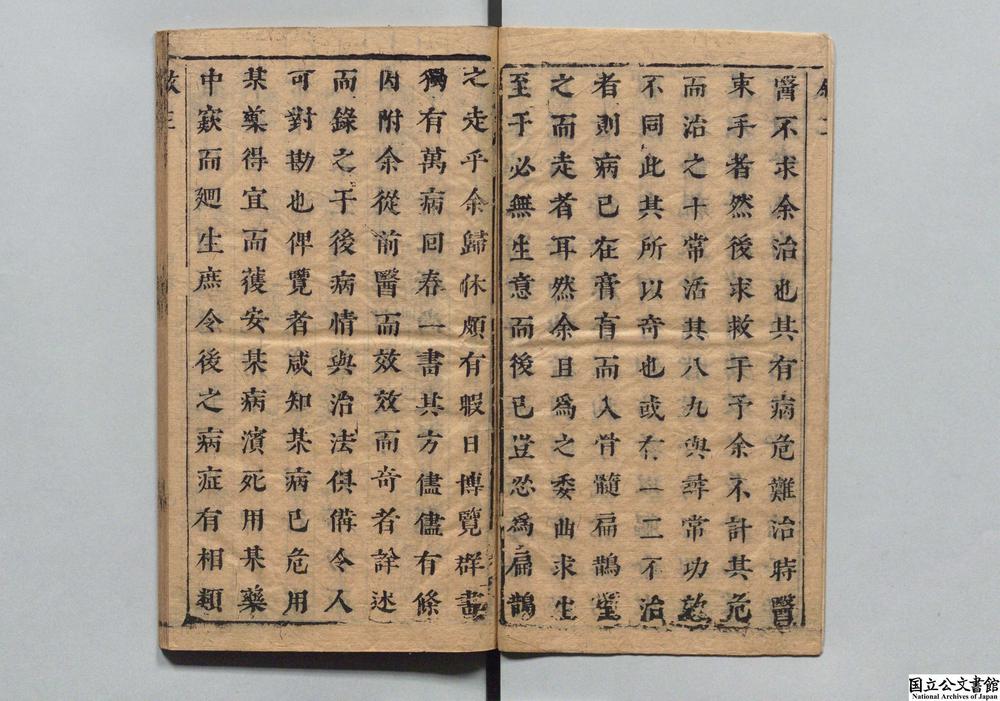 醫不求余治也其有病危難治時醫
束手者然後求救于予余不計其危
而治之十常活其八九與尋常功效
不同此其所以奇也或有一二不治
者則病已在膏肓而入骨髓扁鵲望
之而走者耳然余且為之委曲求生
至于必無生意而後已豈忍為扁鵲
之走乎余歸休頗有暇日博覽群書
獨有萬病回春一書其方儘儘有條
因附余從前醫而效效而奇者詳述
而錄之于後病情與治法俱備令人
可對勘也俾覽者咸知某病已危用
某藥得宜而獲安某病濱死用某藥
中窾而廻生庶令後之病症有相類
国立公文書館
National Archives of Japan